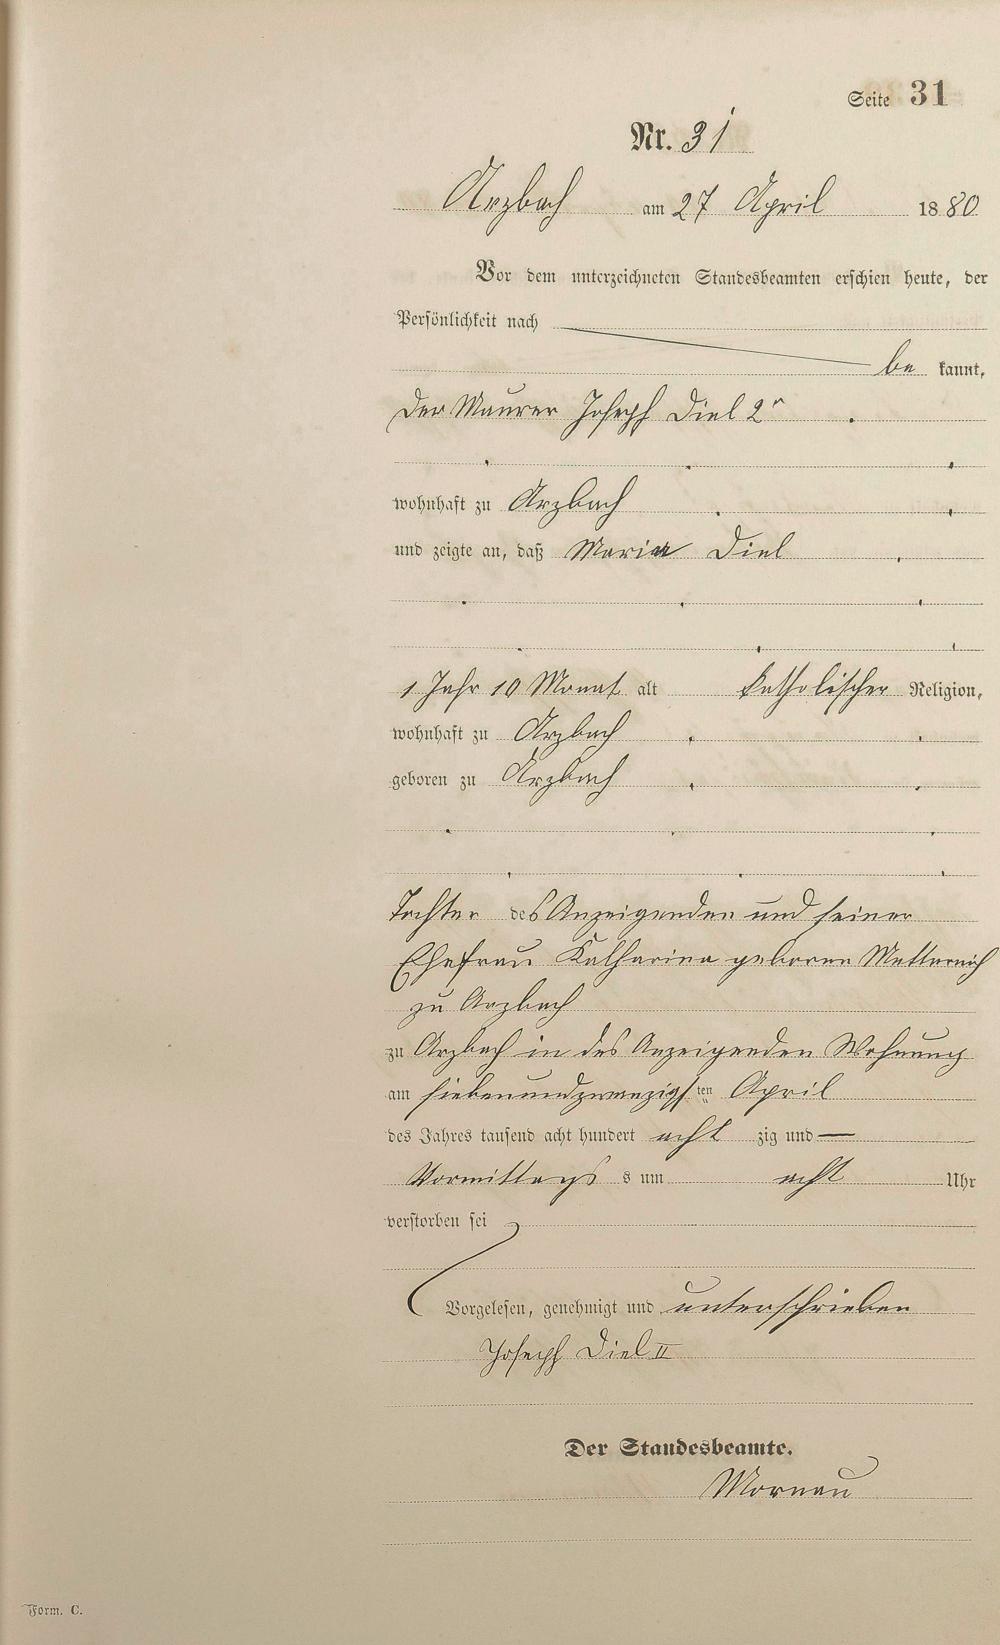 Seite 31
Nr. 31
Arzbach am 27 April 1880
Vor dem unterzeichneten Standesbeamten erschien heute, der
Persönlichkeit nach
be kannt,
der Maurer Joseph Diel 2r
wohnhaft zu Arzbach
und zeigte an, daß Maria Diel
1 Jahr 10 Monat alt katholischer Religion,
wohnhaft zu Arzbach
geboren zu Arzbach
Tochter des Anzeigenden und seiner
Ehefrau Katharina geborene Metternich
zu Arzbach
zu Arzbach in des Anzeigenden Wohnung
am siebenundzwanzigsten April
des Jahres tausend acht hundert acht zig und —
Vormittags s um acht Uhr
verstorben sei
Vorgelesen, genehmigt und unterschrieben
Joseph Diel II
Der Standesbeamte.
Form. C.